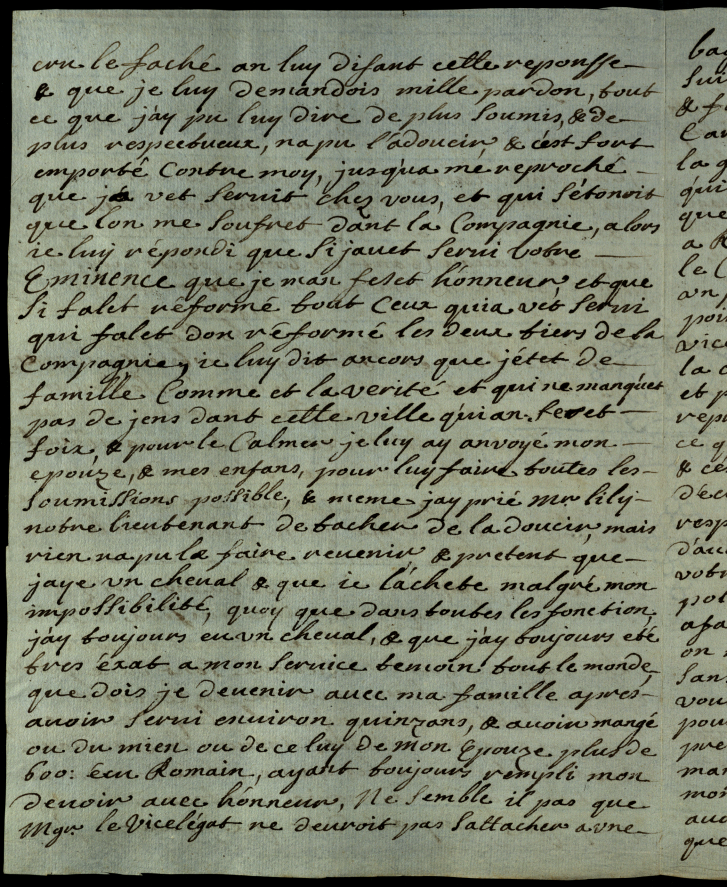 cru le faché an luy disant cette reponsse
& que je luy demandois mille pardon, tout
ce que j'ay pu luy dire de plus soumis, & de
plus respectueux, na pu l'adoucir & c'est fort
emporté Contre moy, jusqu'a me reproché
que ja vet servit chez vous, et qui s'étonoit
que lon me soufret dant la Compagnie, alors
ie luy répondi que si javet servi votre
Eminence que je man feset hónneur, et que
si falet réformé tout Ceux quia vet servi
qui falet don réformé les deux tiers de la
Compagnie, ie luy dit ancors que j'étet de
famille Comme et la verité et qui ne manquet
pas de jens dant cette ville qui an feset
foix, & pour le Calmer je luy ay anvoyé mon
epouze, & mes enfans, pour luy faire toutes les
soumissions possible, & meme jay prié Mr lily
notre lieutenant de tacher de la doucir, mais
rien na pu la faire reuenir & pretent que
jaye vn cheual & que ie l'achete malgré mon
impossibilité, quoy que dans toutes les fonction
j'ay toujours eu vn cheual, & que j'ay toujours eté
tres éxat a mon seruice temoin tout le monde,
que dois je deuenir auec ma famille apres
auoir serui enuiron quinzans, & auoir mangé
ou du mien ou de ce luy de mon Epouze plus de
600: écu Romain, ayant toujours rempli mon
deuoir auec hónneur, Ne semble il pas que
Mgr. le Vicelégat ne deuroit pas sattacher a vne
ba
sur
& f
la q
qui
que
a R
le C
vn
poi
vice
la c
et p
rep
ce q
& cés
de c
resp
d'au
votr
pol
afa
on
san
vou
pour
pre
man
mon
auo
que